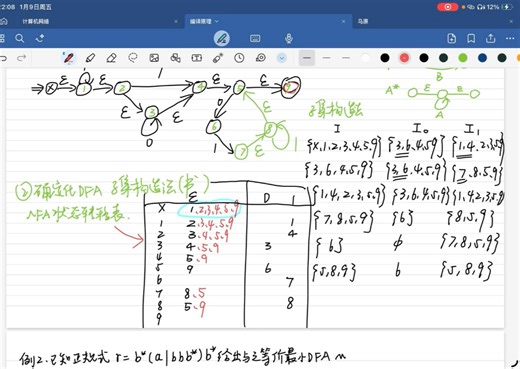 2:08 1月9日周五
12%
计算机网络 编译原理 马原
ε ε 1 ε ε B
X 1 2 4 5 9 A* ε ε
ε ε ε 0 ε A
3 6 8 1
0 1 7 子集构造法
I I₀ I₁
{X,1,2,3,4,5,9} {3,6,4,5,9} {1,4,2,3,5,9}
{3,6,4,5,9} {3,6,4,5,9} {7,8,5,9}
{1,4,2,3,5,9} {3,6,4,5,9} {1,4,2,3,5,9}
{7,8,5,9} {6} {8,5,9}
{6} φ {7,8,5,9}
{5,8,9} 6 {5,8,9}
② 确定化DFA 子集构造法(书)
NFA状态转换表.
ε 0 1
X 1,2,3,4,5,9
1 2,3,4,5,9 1
2 3,4,5,9 4
3 4,5,9 3
4 5,9
5 9 6
6 7
7 8,5
8 5,9 8
9
例2.已知正规式 r=b*(a|bbb*)b*给出与之等价最小DFA M